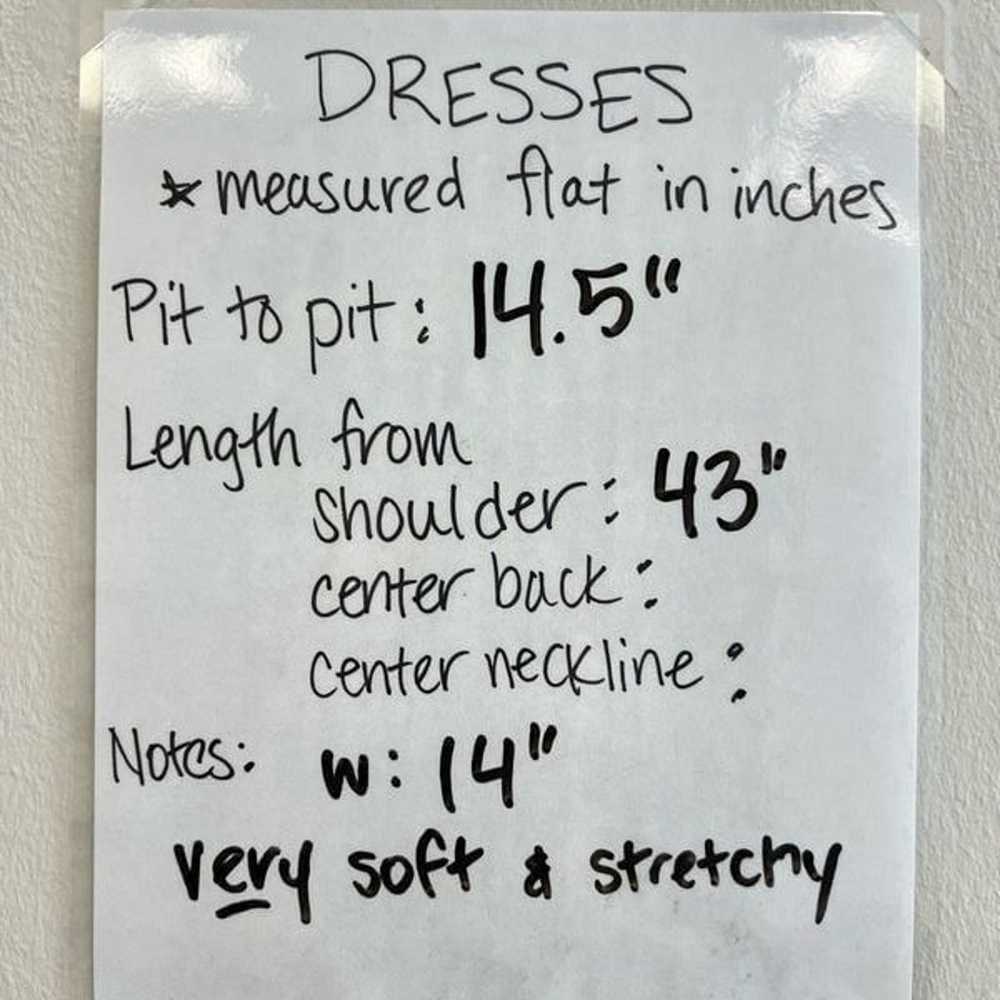 DRESSES
* measured flat in inches
Pit to pit: 14.5"
Length from
shoulder: 43"
center back:
center neckline:
Notes: w: 14"
very soft & stretchy